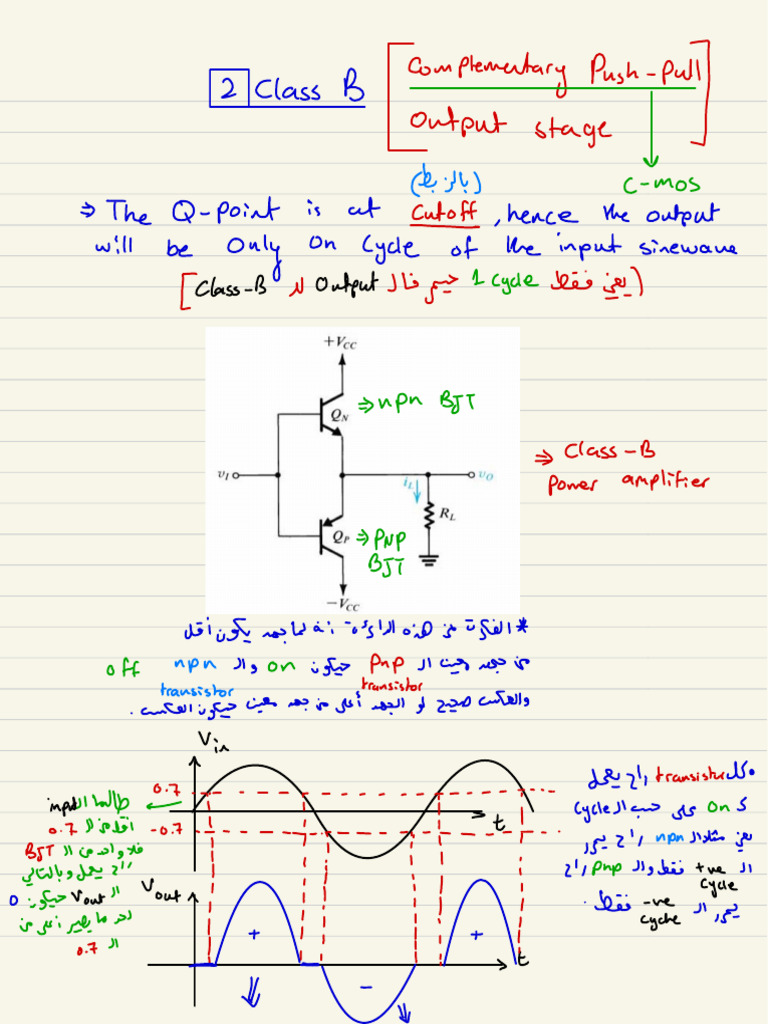 2 Class B [Complementary Push-Pull
Output stage]
C-mos
(بالزبط)
⇒ The Q-Point is at Cutoff, hence the output
will be Only On Cycle of the input sinewave
(يعني فقط 1 cycle حيمر فال Output لل Class-B]
+VCC
QN ⇒ npn BJT
vI
vO
iL
RL
QP ⇒ PNP
BJT
-VCC
⇒ Class-B
Power amplifier
* الفكرة من هذه الدائرة انه لما جهد يكون أقل
من جهد معين ال Pnp transistor حيكون on وال npn transistor off
والعكس صحيح لو الجهد أعلى من جهد معين حيكون العكس.
Vin
0.7
-0.7
t
طالما ال input
اقل من ال 0.7
فلا واحد من ال BJT
راح يعمل وبالتالي
ال Vout حيكون 0
لحد ما يصير أعلى من
ال 0.7
Vout
+
-
+
t
كل transistor راح يعمل
on على حسب ال Cycle
يعني مثلا ال npn راح يمرر
ال +ve cycle فقط وال pnp راح
يمرر ال -ve cycle فقط.